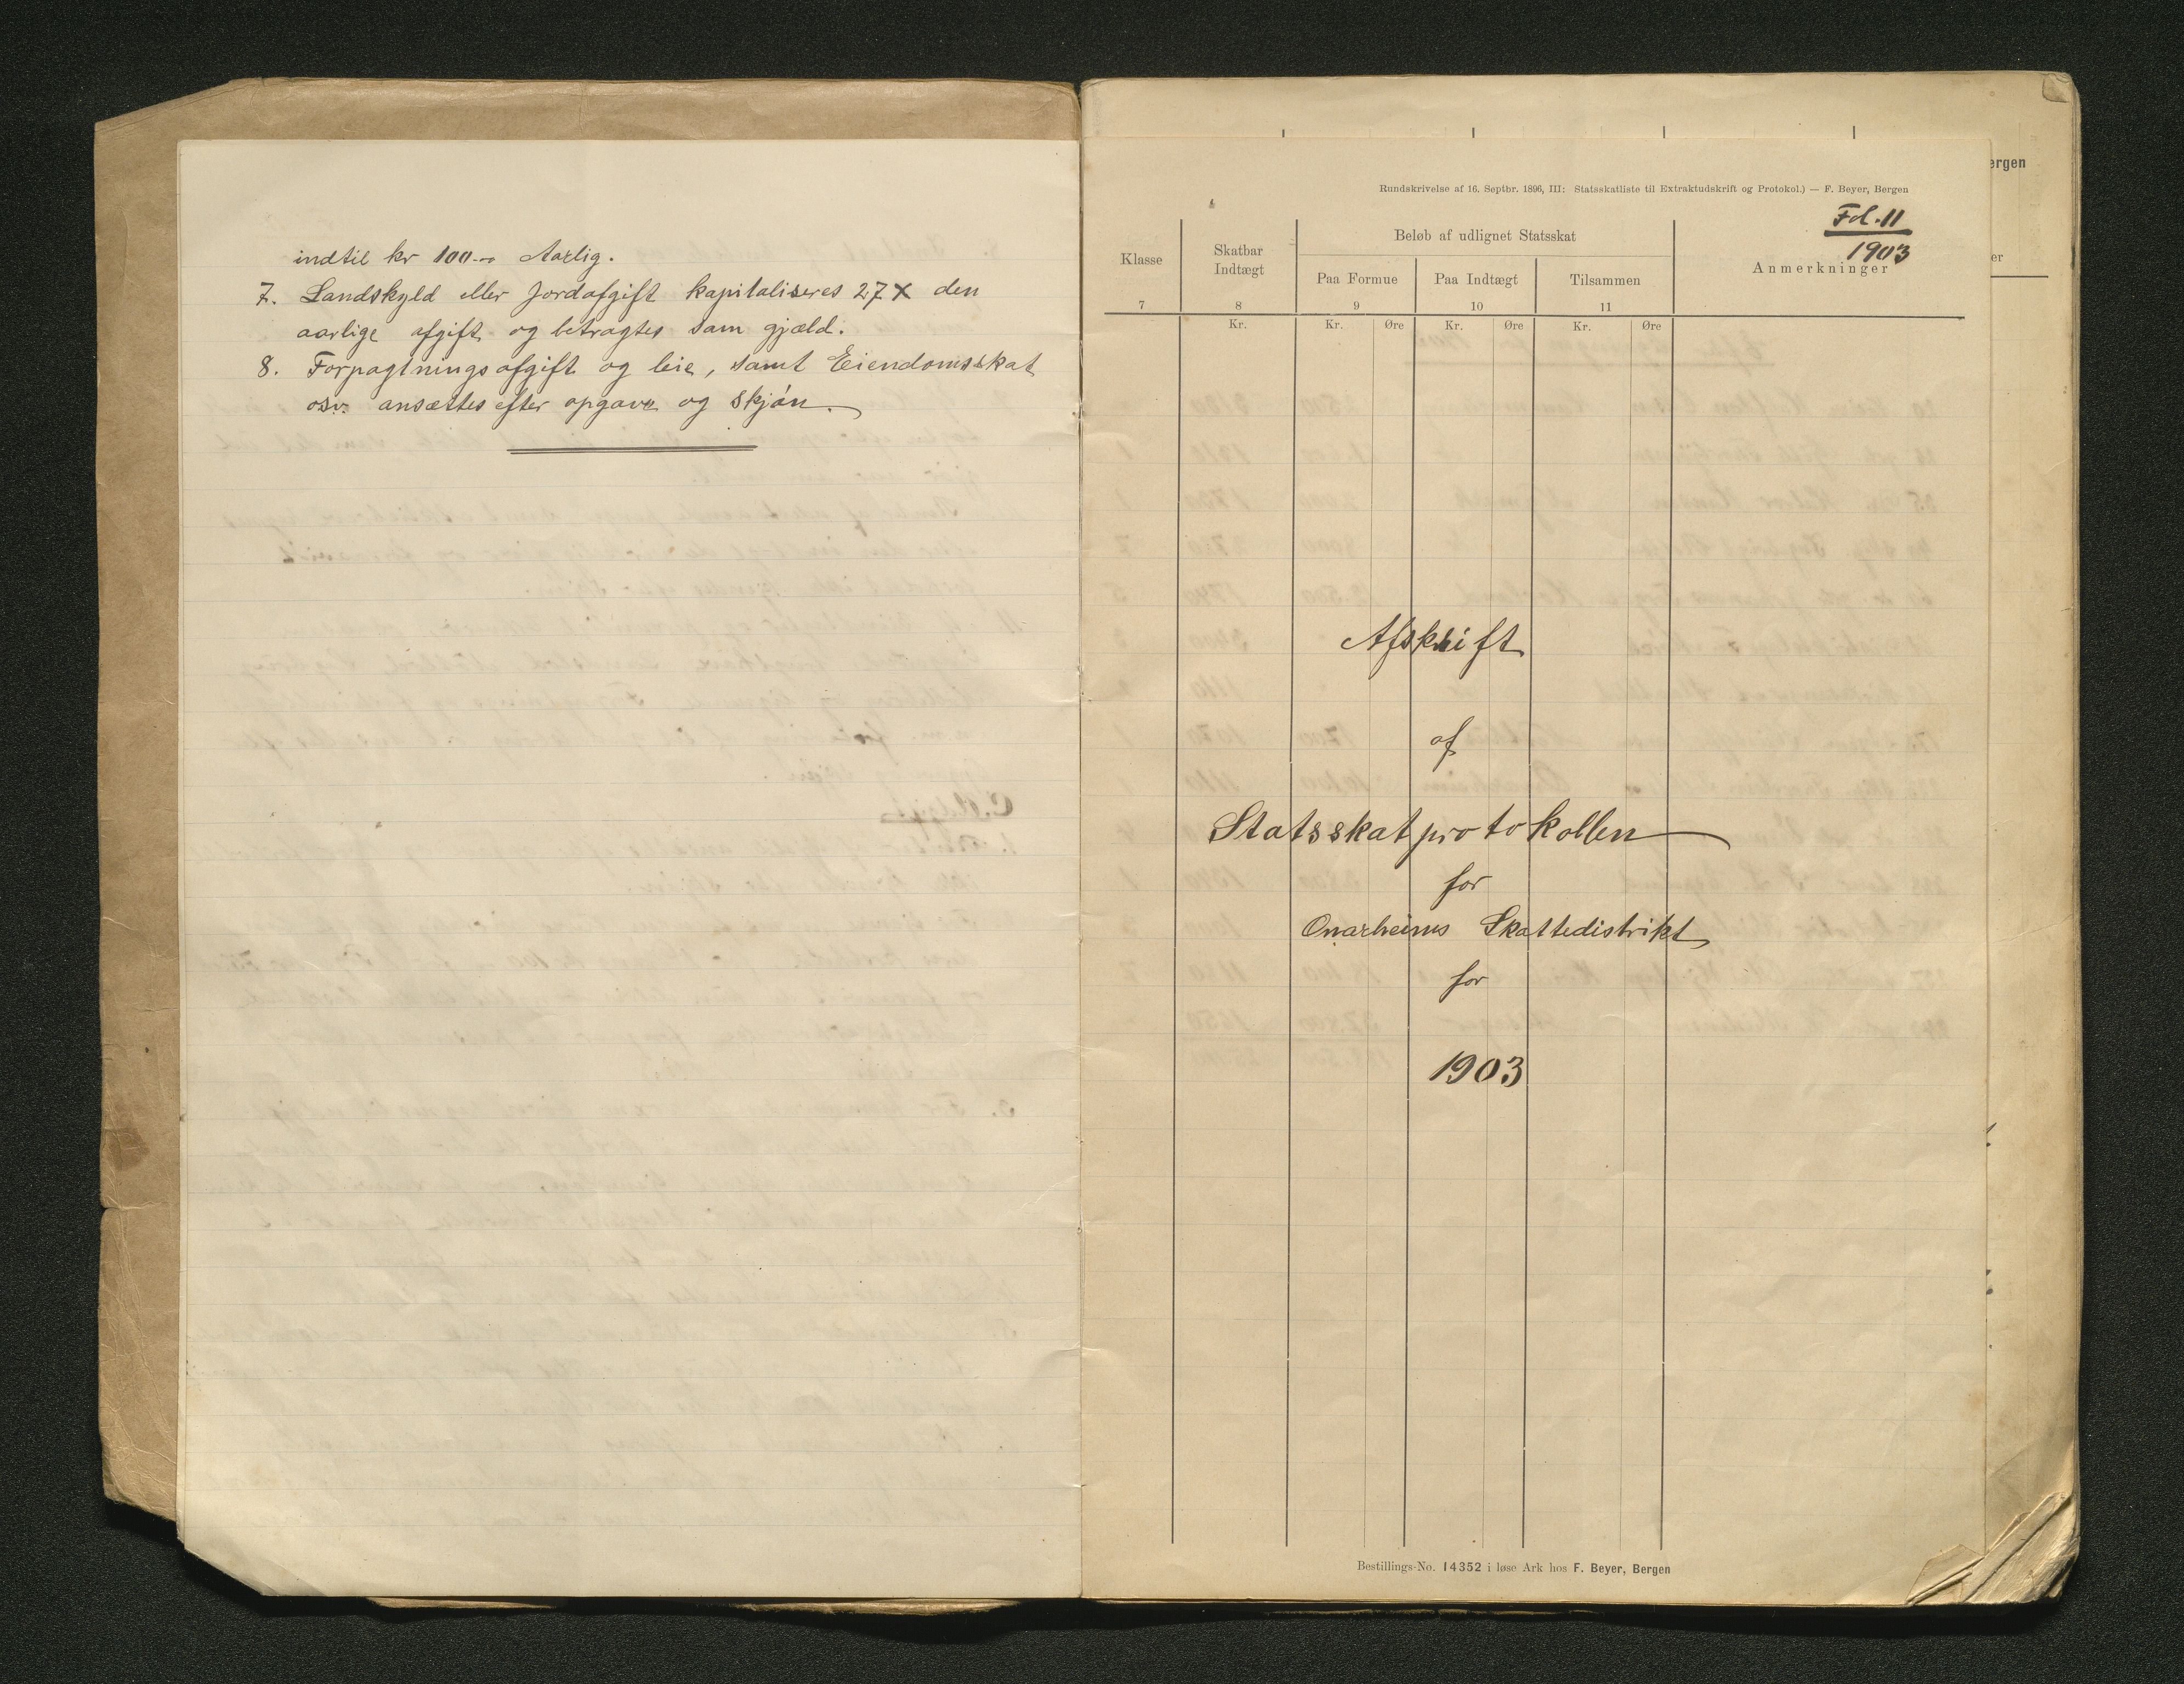 indtil kr 100.- Aarlig.
7. Landskyld eller Jordafgift kapitaliseres 27 X den
aarlige afgift og betragtes som gjæld.
8. Forpagtningsafgift og leie, samt Eiendomsskat
osv. ansættes efter opgave og skjøn.
ergen
er
Rundskrivelse af 16. Septbr. 1896, III: Statsskatliste til Extraktudskrift og Protokol.) — F. Beyer, Bergen
Fol. 11
1903
Klasse
Skatbar Indtægt
Beløb af udlignet Statsskat
Paa Formue
Paa Indtægt
Tilsammen
Anmerkninger
7 8 9 10 11
Kr. Kr. Øre Kr. Øre Kr. Øre
Afskrift
af
Statsskatprotokollen
for
Onarheims Skattedistrikt
for
1903
Bestillings-No. 14352 i løse Ark hos F. Beyer, Bergen